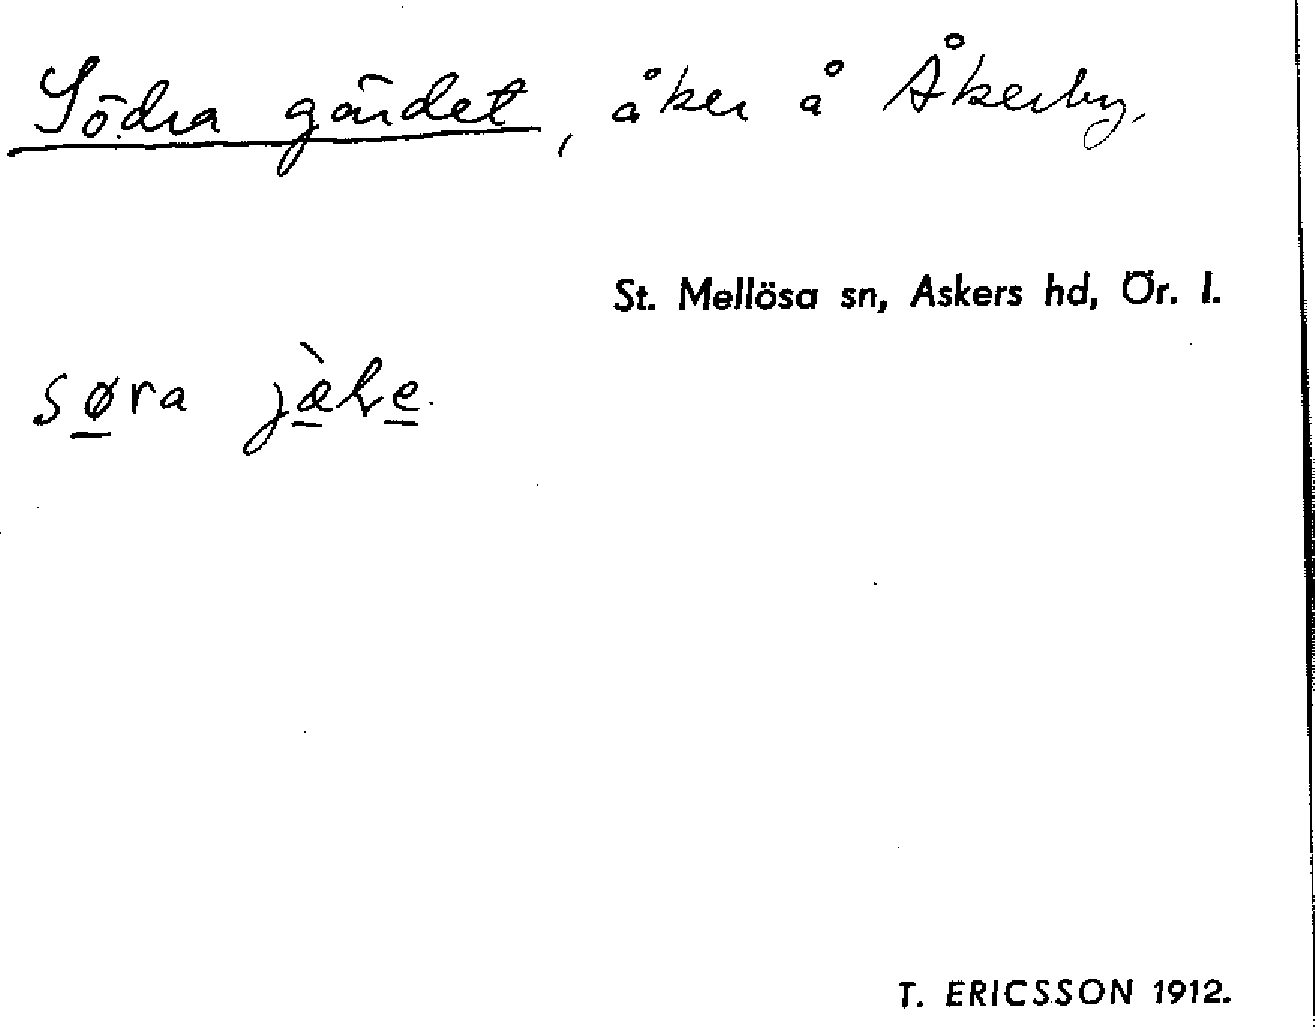 Södra gärdet, åker å Åkerby.
St. Mellösa sn, Askers hd, Ör. l.
søra
T. ERICSSON 1912.